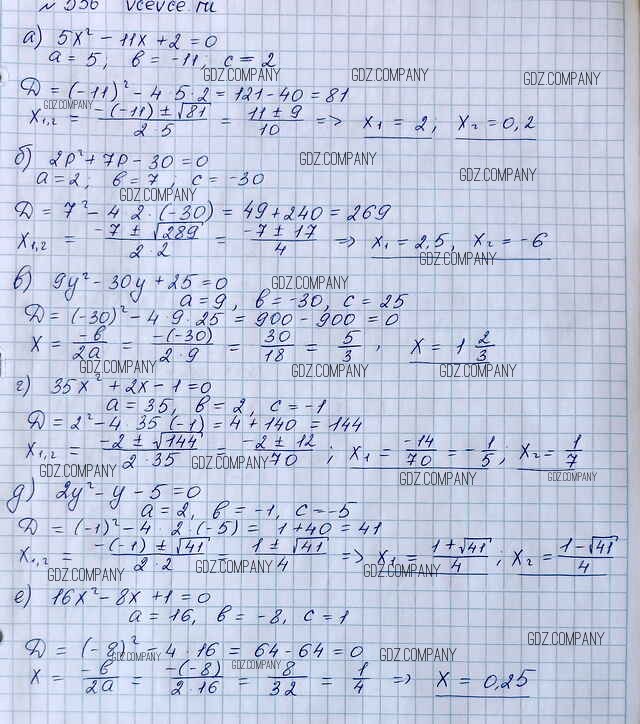 № 556 vcevce.ru
а) 5x² - 11x + 2 = 0
a = 5, в = -11, c = 2
GDZ.COMPANY GDZ.COMPANY GDZ.COMPANY
D = (-11)² - 4 · 5 · 2 = 121 - 40 = 81
GDZ.COMPANY
x₁,₂ = (-(-11) ± √81)/(2 · 5) = (11 ± 9)/10 => x₁ = 2; x₂ = 0,2
б) 2p² + 7p - 30 = 0 GDZ.COMPANY
a = 2, в = 7, c = -30 GDZ.COMPANY
GDZ.COMPANY
D = 7² - 4 2 · (-30) = 49 + 240 = 269
x₁,₂ = (-7 ± √289)/(2 · 2) = (-7 ± 17)/4 => x₁ = 2,5, x₂ = -6
GDZ.COMPANY
в) 9y² - 30y + 25 = 0 GDZ.COMPANY
a = 9, в = -30, c = 25
D = (-30)² - 4 9 · 25 = 900 - 900 = 0
x = -в/2a = -(-30)/(2 · 9) = 30/18 = 5/3, x = 1 2/3
GDZ.COMPANY GDZ.COMPANY GDZ.COMPANY
г) 35x² + 2x - 1 = 0
a = 35, в = 2, c = -1
D = 2² - 4 · 35 (-1) = 4 + 140 = 144
x₁,₂ = (-2 ± √144)/(2 · 35) = (-2 ± 12)/70; x₁ = -14/70 = -1/5; x₂ = 1/7
GDZ.COMPANY GDZ.COMPANY GDZ.COMPANY GDZ.COMPANY
д) 2y² - y - 5 = 0
a = 2, в = -1, c = -5
D = (-1)² - 4 · 2 · (-5) = 1 + 40 = 41
x₁,₂ = (-(-1) ± √41)/(2 · 2) = (1 ± √41)/4 => x₁ = (1 + √41)/4; x₂ = (1 - √41)/4
GDZ.COMPANY GDZ.COMPANY GDZ.COMPANY
е) 16x² - 8x + 1 = 0
a = 16, в = -8, c = 1
GDZ.COMPANY
D = (-8)² - 4 · 16 = 64 - 64 = 0
GDZ.COMPANY GDZ.COMPANY GDZ.COMPANY
x = -в/2a = -(-8)/(2 · 16) = 8/32 = 1/4 => x = 0,25